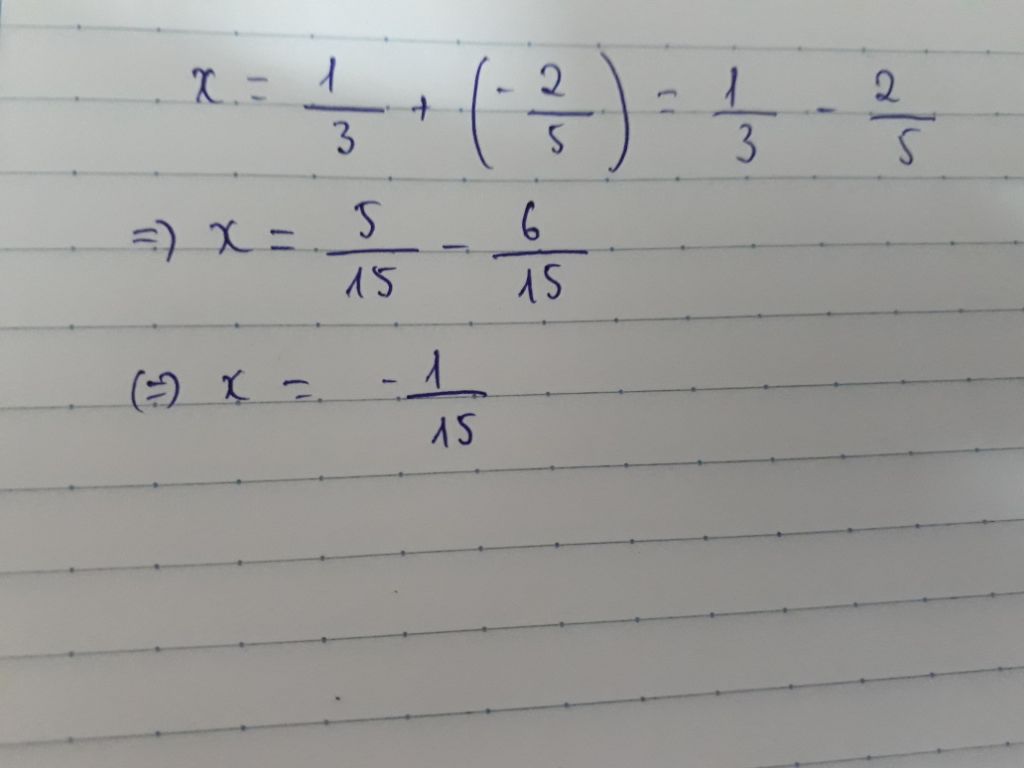 x = 1/3 + (- 2/5) = 1/3 - 2/5
=> x = 5/15 - 6/15
(=) x = - 1/15